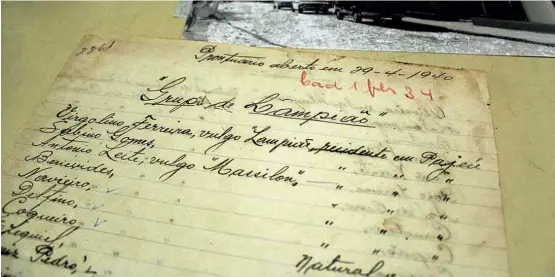 Prontuario aberto em 29-4-1940
cad 1 fls 34
"Grupo de Lampião"
Virgolino Ferreira, vulgo Lampião, residente em Pageú
Sabino Gomes, " " "
Antonio Leite, vulgo "Massilon", " " "
Benevides, " " "
Navieiro, " " "
Delfino, " " "
Coqueiro, " " "
Ezequiel " " "
Luiz Pedro, Natural "